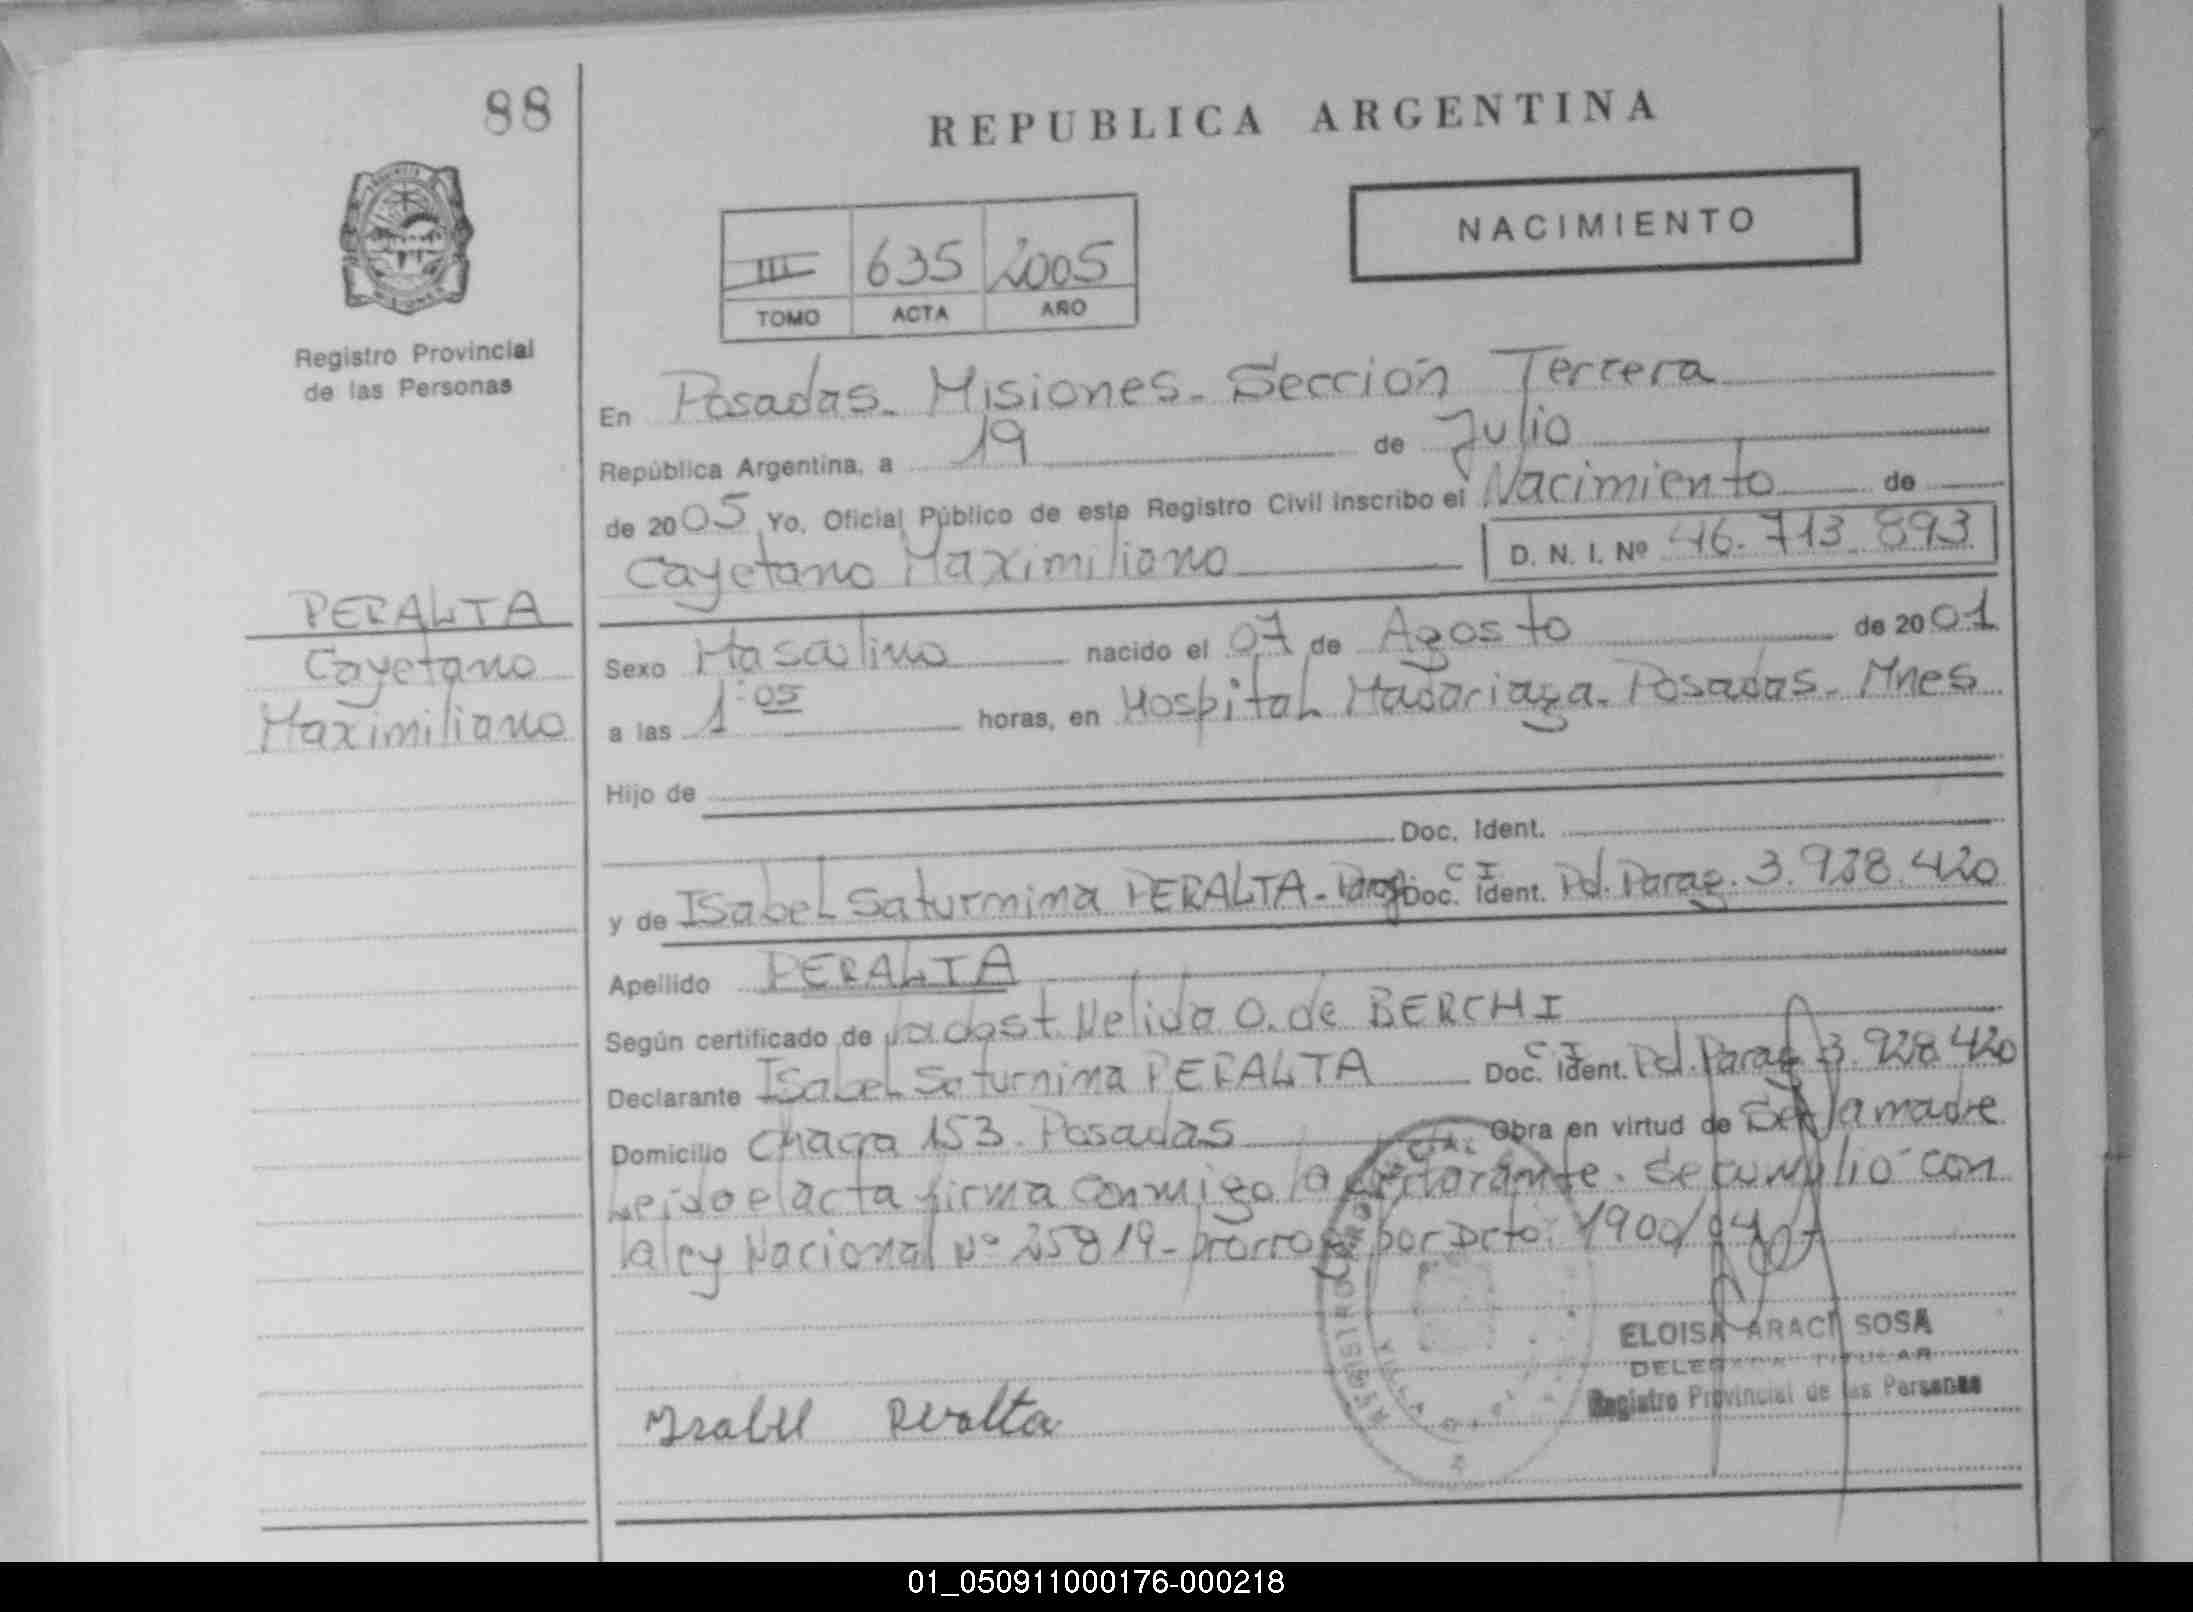 88
REPUBLICA ARGENTINA
NACIMIENTO
III 635 2005
TOMO ACTA AÑO
Registro Provincial
de las Personas
En Posadas. Misiones. Sección Tercera
República Argentina, a 19 de Julio
de 2005 Yo, Oficial Público de este Registro Civil inscribo el Nacimiento de
Cayetano Maximiliano D. N. I. Nº 46.713.893
PERALTA
Cayetano
Maximiliano
Sexo Masculino nacido el 07 de Agosto de 2001
a las 1:05 horas, en Hospital Madariaga. Posadas. Mnes
Hijo de
Doc. Ident.
y de Isabel Saturnina PERALTA. Doc. Ident. C I Pol. Parag. 3.928.420
Apellido PERALTA
Según certificado de Nelida O. de BERCHI
Declarante Isabel Saturnina PERALTA Doc. Ident. C I Pol. Parag 3.928.420
Domicilio Chacra 153. Posadas Obra en virtud de Ser la madre
Leido el acta firma conmigo la declarante. Se cumplió con
la ley Nacional Nº 25819- prorrog por Dcto. 1900/04
ELOISA ARACI SOSA
DELEGADA TITULAR
Registro Provincial de las Personas
Isabel Peralta
01_050911000176-000218